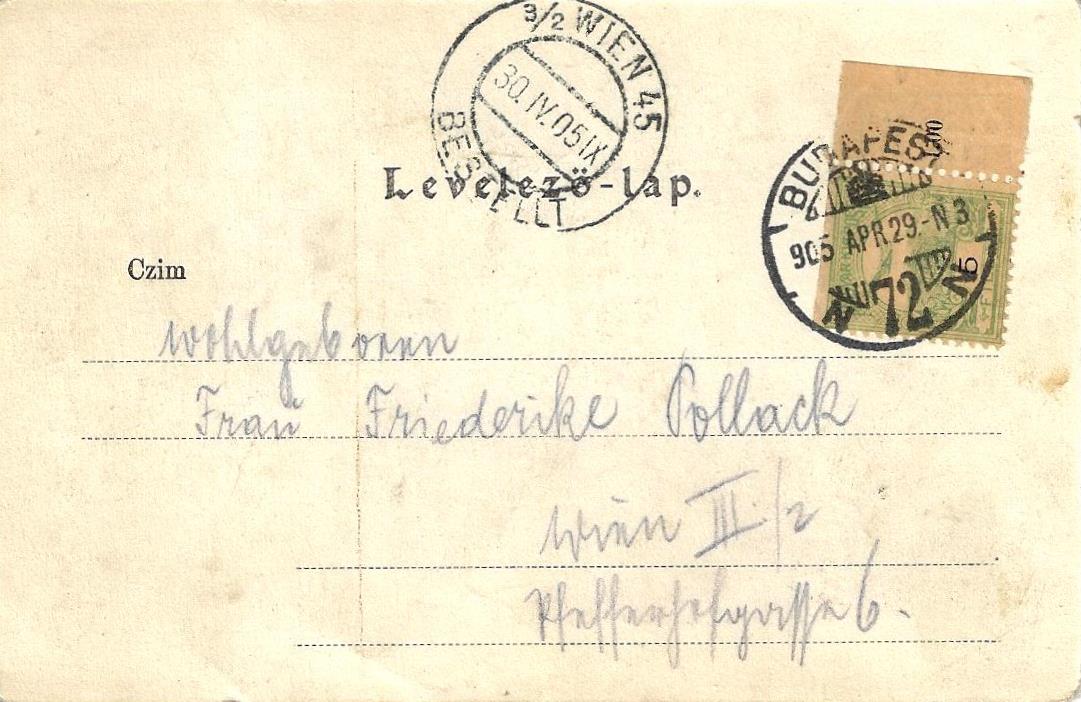 3/2 WIEN 45
30.IV.05 IX
BESTELLT
BUDAPEST
905 APR.29.-N 3
N 72 N
5
Levelező-lap.
Czim
Wohlgeboren
Frau Friederike Pollack
Wien III/2
Pfefferhofgasse 6.